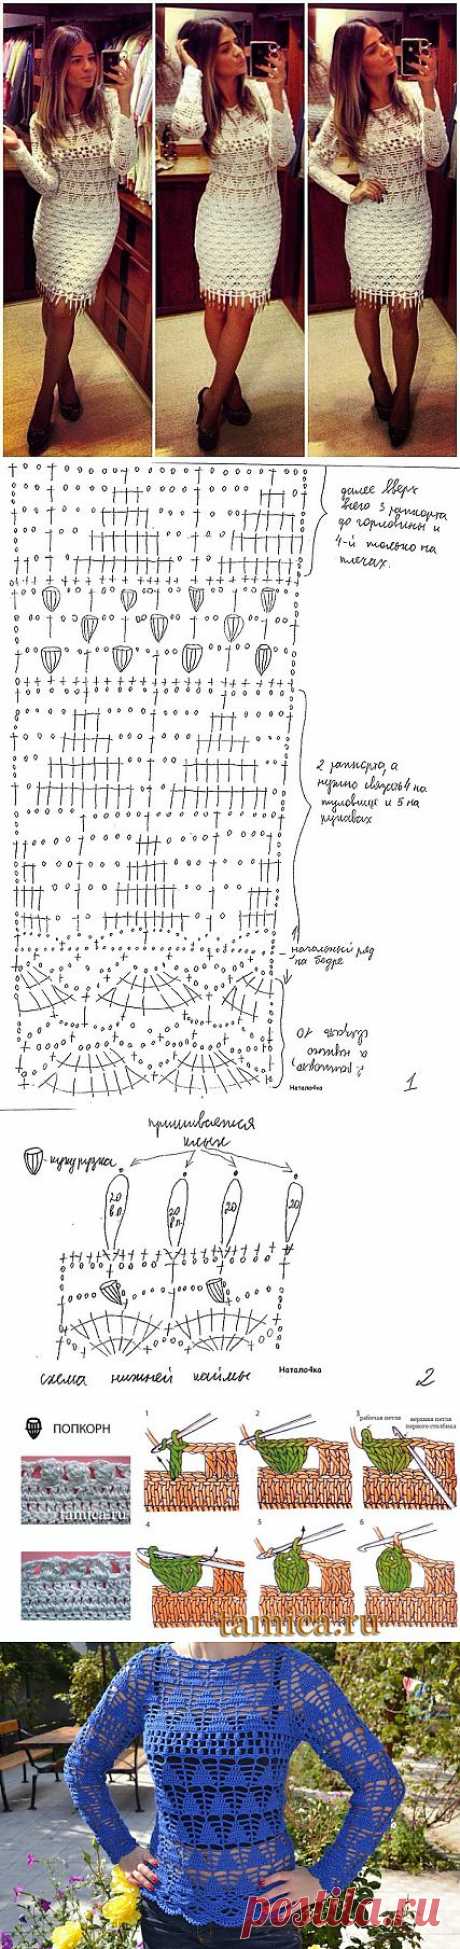 далее вверх
всего 3 раппорта
до горловины и
4-й только на
плечах.
2 раппорта, а
нужно связать 4 на
туловище и 5 на
рукавах
начальный ряд
на бедре
2 раппорта,
а нужно
связать 10
Натало4ка
1
пришивается
клык
кукурузка
20
в.п.
20
в.п.
20
20
Натало4ка
схема нижней каймы
2
ПОПКОРН
1
2
3
рабочая петля
верхняя петля
первого столбика
tamica.ru
4
5
6
tamica.ru
postila.ru